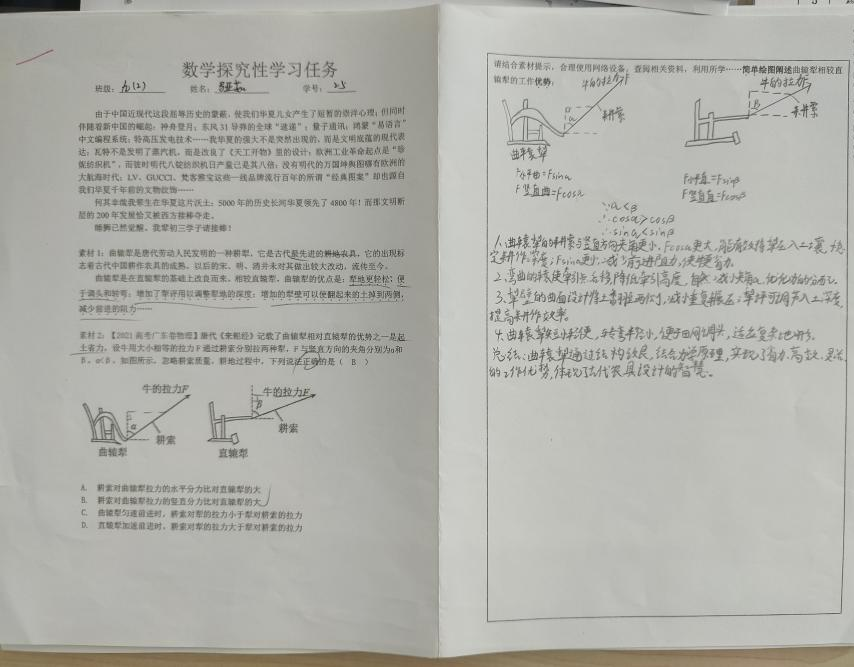 数学探究性学习任务
班级： 九(2) 姓名： 学号： 25
由于中国近现代这段屈辱历史的蒙蔽，使我们华夏儿女产生了短暂的崇洋心理；但同时
伴随着新中国的崛起：神舟登月；东风31导弹的全球“速递”；量子通讯；鸿蒙“易语言”
中文编程系统；特高压发电技术……我华夏的强大不是突然出现的，而是文明底蕴的现代表
达：瓦特不是发明了蒸汽机，而是改良了《天工开物》里的设计；欧洲工业革命起点是“珍
妮纺织机”，而彼时明代八锭纺织机日产量已是其八倍；没有明代的万国坤舆图哪有欧洲的
大航海时代；LV、GUCCI、梵客雅宝这些一线品牌流行百年的所谓“经典图案”却也源自
我们华夏千年前的文物纹饰……
何其幸哉我辈生在华夏这片沃土：5000年的历史长河华夏领先了4800年！而那文明断
层的200年发展恰又被西方接棒夺走。
睡狮已然觉醒，我辈初三学子请接棒！
素材1：曲辕犁是唐代劳动人民发明的一种耕犁，它是古代最先进的耕地农具，它的出现标
志着古代中国耕作农具的成熟，以后的宋、明、清并未对其做出较大改动，流传至今。
曲辕犁是在直辕犁的基础上改良而来，相较直辕犁，曲辕犁的优点是：犁地更轻松；便
于调头和转弯；增加了犁评用以调整犁地的深度；增加的犁壁可以使翻起来的土掉到两侧，
减少前进的阻力……
素材2：【2021高考广东卷物理】唐代《耒耜经》记载了曲辕犁相对直辕犁的优势之一是起
土省力，设牛用大小相等的拉力F通过耕索分别拉两种犁，F与竖直方向的夹角分别为α和
β，α<β，如图所示，忽略耕索质量，耕地过程中，下列说法正确的是（ B ）
牛的拉力F
α
耕索
曲辕犁
牛的拉力F
β
耕索
直辕犁
A. 耕索对曲辕犁拉力的水平分力比对直辕犁的大
B. 耕索对曲辕犁拉力的竖直分力比对直辕犁的大
C. 曲辕犁匀速前进时，耕索对犁的拉力小于犁对耕索的拉力
D. 直辕犁加速前进时，耕索对犁的拉力大于犁对耕索的拉力
请结合素材提示，合理使用网络设备，查阅相关资料，利用所学……简单绘图阐述曲辕犁相较直
辕犁的工作优势：
牛的拉力F
α
耕索
曲辕犁
牛的拉力F
β
耕索
F水平曲=Fsinα
F竖直曲=Fcosα
F水平直=Fsinβ
F竖直直=Fcosβ
∵α<β
∴cosα>cosβ
∴sinα<sinβ
1.曲辕犁的耕索与竖直方向夹角更小，Fcosα更大，能有效将犁压入土壤，稳
定耕作深度；Fsinα更小，减少前进阻力，使牛更省力。
2.弯曲的辕使牵引点后移，降低牵引高度，自然减小夹角α，优化力的分配。
3.犁壁的曲面设计将土垡推向两侧，减小重复翻土；犁评可调节入土深度，
提高耕作效率。
4.曲辕犁短小轻便，转弯半径小，便于田间调头，适应复杂地形。
总结：曲辕犁通过结构改良，结合力学原理，实现了省力、高效、灵活
的工作优势，体现了古代农具设计的智慧。